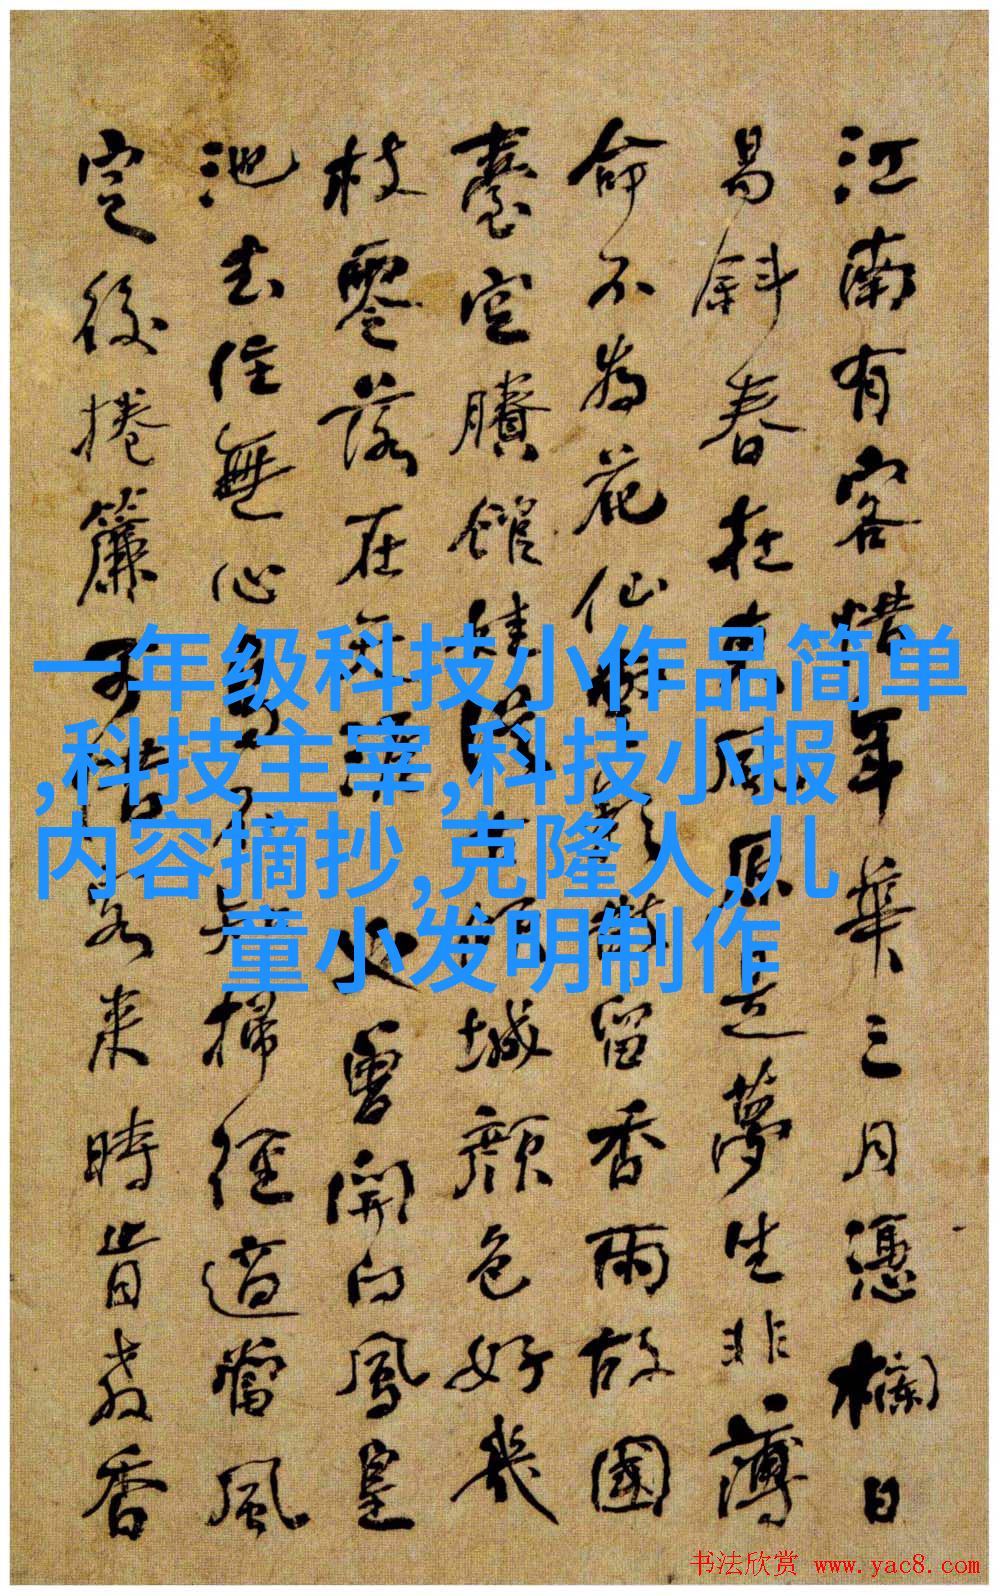 江南有客惜年華三月憑欄日
易斜春在東風原是夢生非薄
命不為花仙留香雨故國
臺空賸館娃從古傾城顏色好幾
枝零落在天涯
曾開向鳳皇
池去住無心掃徑適當風
定後捲簾可惜客來時肯教香
一年级科技小作品简单
,科技主宰,科技小报
内容摘抄,克隆人,儿
童小发明制作
书法欣赏 www.yac8.com